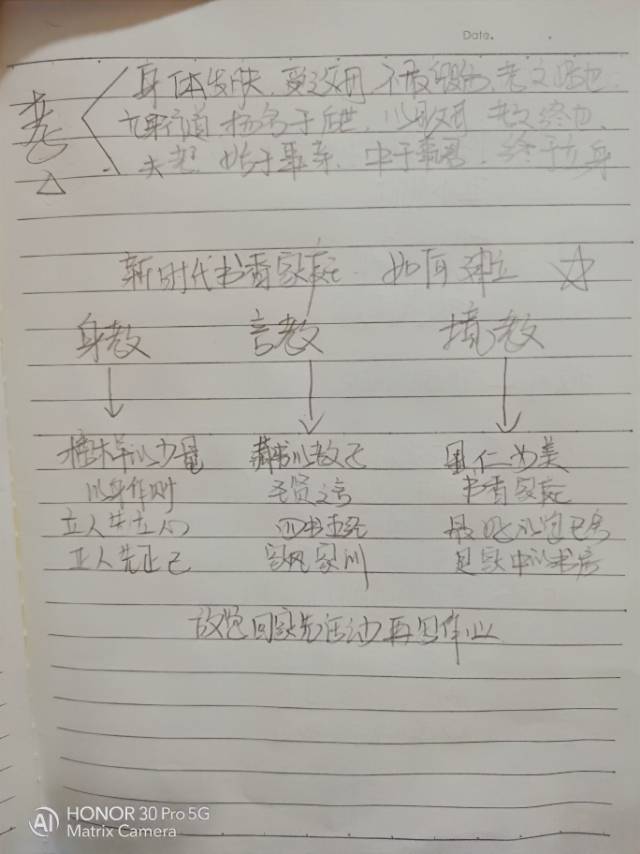 Date.
孝
身体发肤,受之父母 不敢毁伤,孝之始也.
立身行道 扬名于后世,以显父母 孝之终也.
夫孝 始于事亲,中于事君,终于立身
新时代书香家庭 如何建立 ☆
身教 言教 境教
藏书以教子 里仁为美
以身作则 圣贤之言 书香家庭
立人先立心 四书五经
正人先正己 家风家训 是家中的书房
放学回家先活动再写作业
HONOR 30 Pro 5G
Matrix Camera